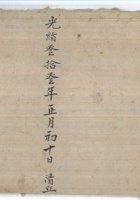 光緒叁拾叁年正月初十日 清立